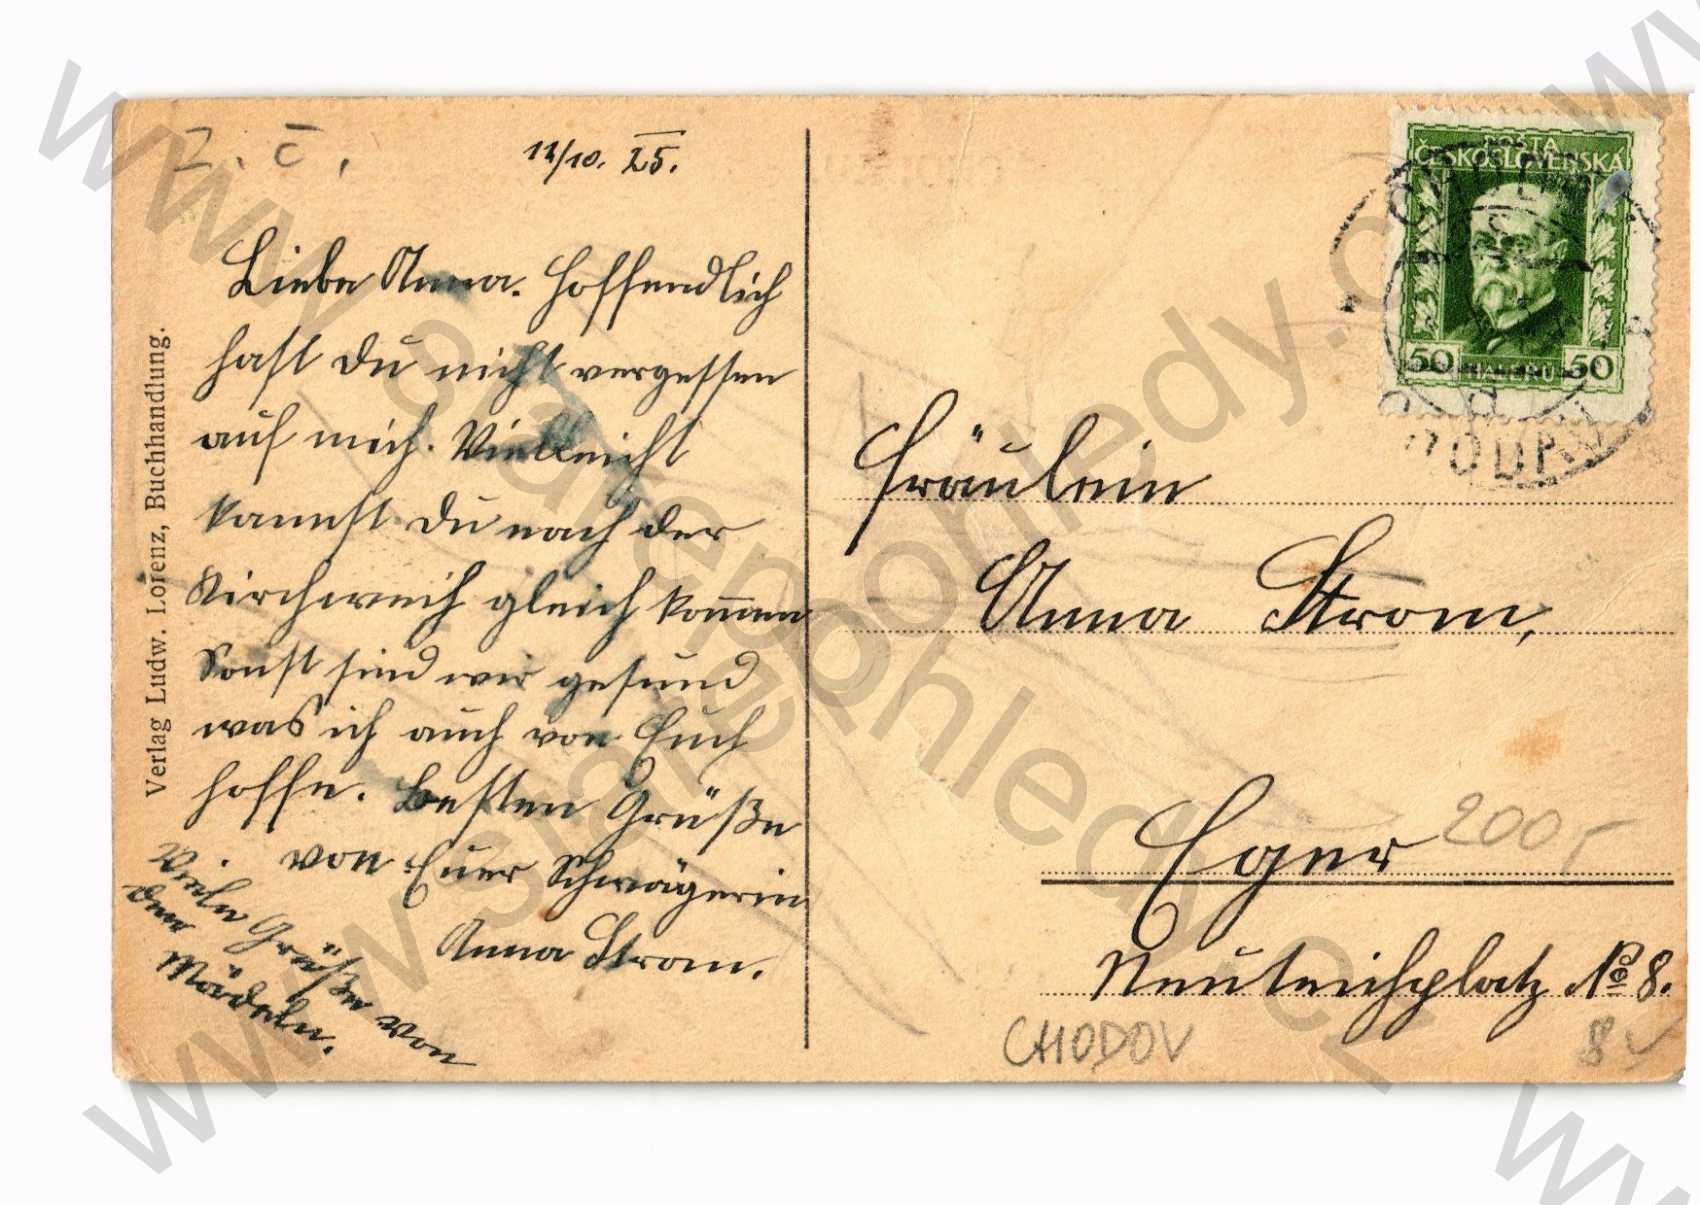 Z. č.
12/10. 25.
Liebe Anna. Hoffendlich
hast du nicht vergessen
auf mich. Vielleicht
kannst du nach der
Kirchweih gleich kommen
Sonst sind wir gesund
was ich auch von Euch
hoffe. Besten Grüße
von Euer Schwägerin
Anna Strom.
Viele Grüße von
den
Mädeln.
Verlag Ludw. Lorenz, Buchhandlung.
POŠTA
ČESKOSLOVENSKÁ
50 HALÉŘŮ 50
Fräulein
Anna Strom,
Eger
200,-
Neuteichplatz No 8.
CHODOV
8
www.starepohledy.cz
www.starepohledy.cz